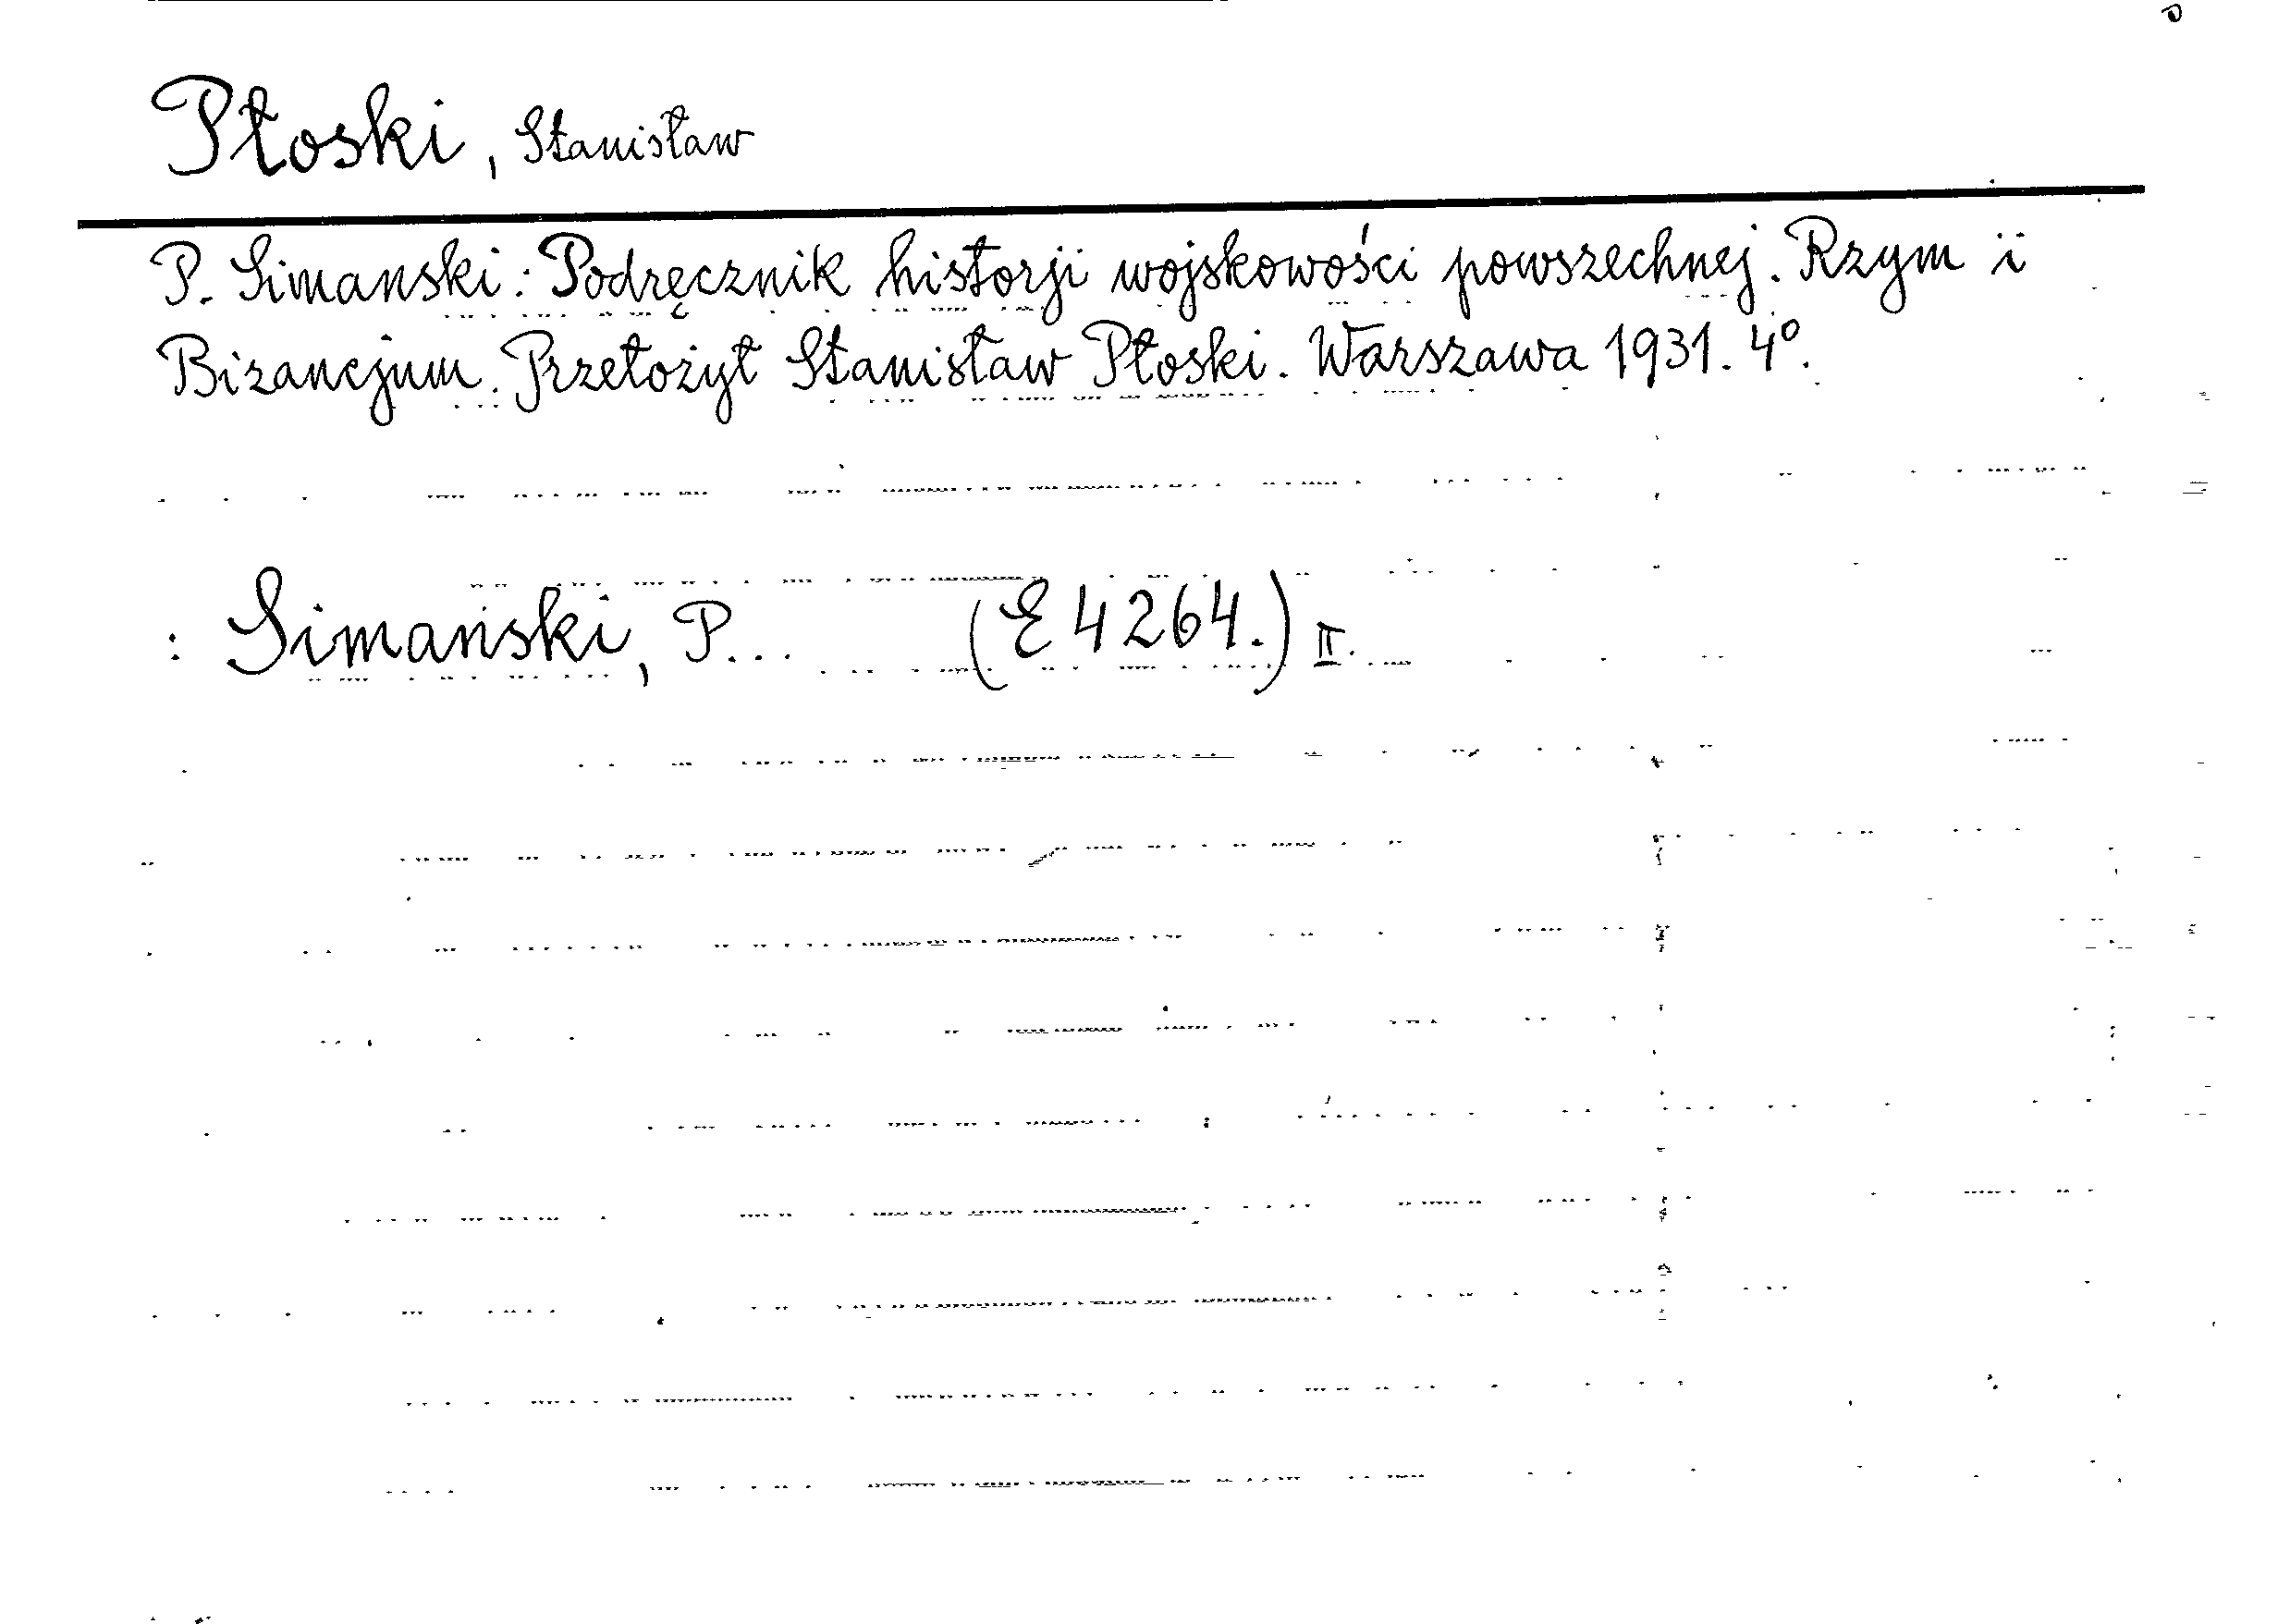 Płoski, Stanisław
P. Simanski: Podręcznik historji wojskowości powszechnej. Rzym i
Bizancjum. Przełożył Stanisław Płoski. Warszawa 1931. 4º.
: Simański, P... (E 4264.) II.